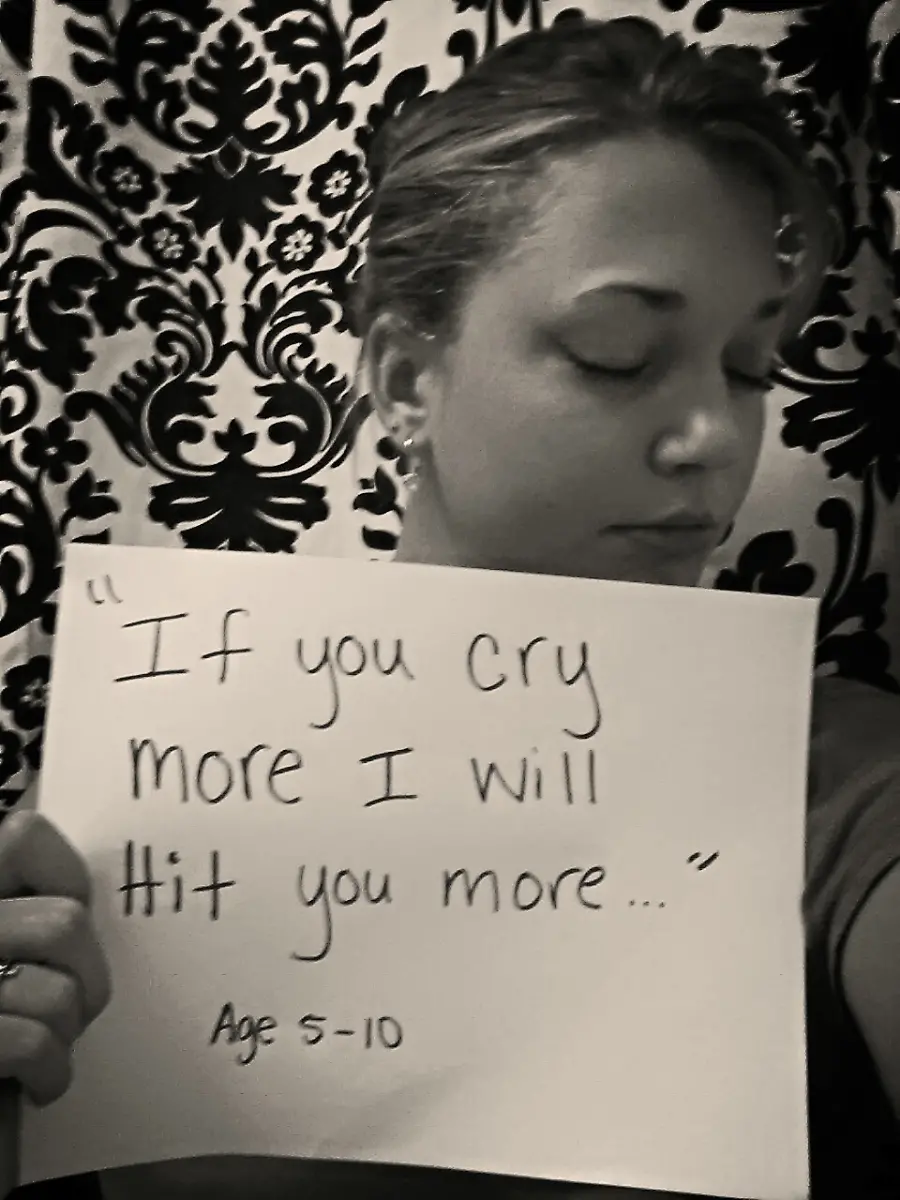 "If you cry
more I will
Hit you more..."
Age 5-10